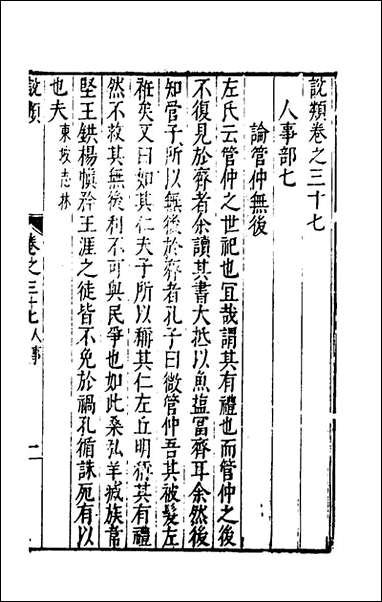 說類卷之三十七
人事部七
論管仲無後
左氏云管仲之世祀也冝哉謂其有禮也而管仲之後
不復見於齊者余讀其書大抵以魚塩冨齊耳余然後
知管子所以無後於齊者孔子曰微管仲吾其被髮左
袵矣又曰如其仁夫子所以稱其仁左丘明稱其有禮
然不救其無後利不可與民爭也如此桑弘羊滅族韋
堅王鉷楊慎矜王涯之徒皆不免於禍孔循誅死有以
也夫 東坡志林
說類
卷之三十七 人事
一